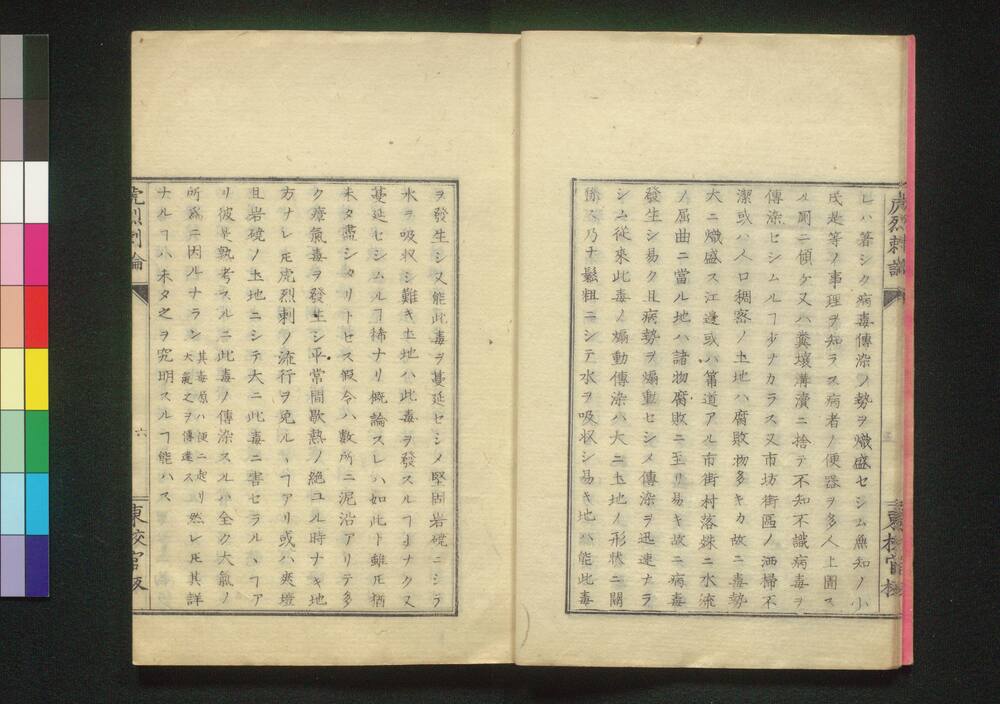 レハ著シク病毒傳染ノ勢ヲ熾盛セシム無知ノ小
民是等ノ事理ヲ知ラス病者ノ便器ヲ多人上圊ス
ル厠ニ傾ケ又ハ糞壤溝瀆ニ捨テ不知不識病毒ヲ
傳染セシムルヿ少ナカラス又市坊街區ノ洒掃不
潔或ハ人口稠密ノ土地ハ腐敗物多キカ故ニ毒勢
大ニ熾盛ス江邊或ハ筩道アル市街村落殊ニ水流
ノ屈曲ニ當ル地ハ諸物腐敗ニ至リ易キ故ニ病毒
發生シ易ク且病勢ヲ煽動セシメ傳染ヲ迅速ナラ
シム従來此毒ノ煽動傳染ハ大ニ土地ノ形狀ニ關
係ス乃チ鬆粗ニシテ水ヲ吸收シ易キ地ハ能此毒
ヲ發生シ又能此毒ヲ蔓延セシメ堅固岩磽ニシテ
水ヲ吸收シ難キ土地ハ此毒ヲ發スルヿ少ナク又
蔓延セシムルヿ稀ナリ概論スレハ如此ト雖𪜈猶
未タ盡シタリトセス假令ハ數所ニ泥沼アリテ多
ク瘴氣毒ヲ發生シ平常間歇熱ノ絶ユル時ナキ地
方ナレ𪜈虎烈剌ノ流行ヲ免ルヽヿアリ或ハ爽塏
且岩磽ノ土地ニシテ大ニ此毒ニ害セラルヽヿア
リ彼是熟考スルニ此毒ノ傳染スルハ全ク大氣ノ
所爲ニ因ルナラン其毒原ハ便ニ起リ大氣之ヲ傳達ス然レ𪜈其詳
ナルヿハ未タ之ヲ究明スルヿ能ハス
虎烈剌論
六
東校官版